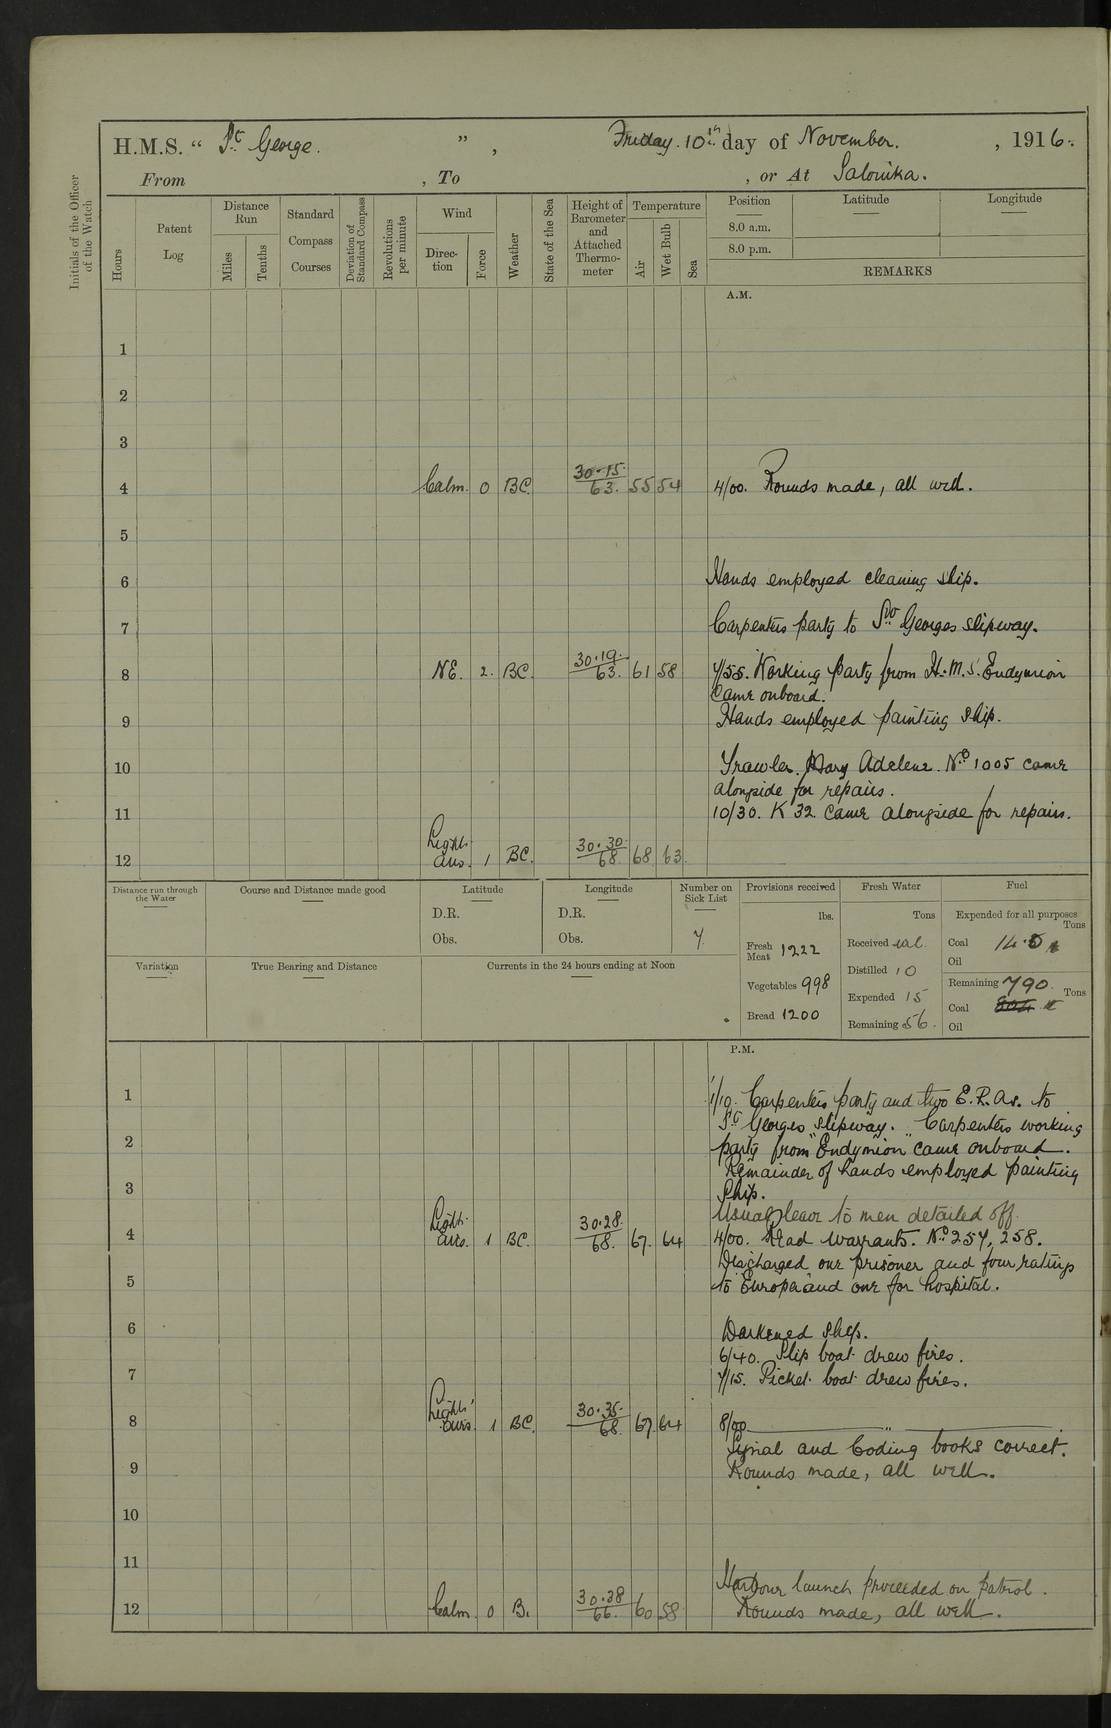 H.M.S. “ St George. ” , Friday 10th day of November. , 1916.
From , To , or At Salonika.
Initials of the Officer of the Watch
Hours
Patent Log
Distance Run
Miles
Tenths
Standard Compass Courses
Deviation of Standard Compass
Revolutions per minute
Wind
Direc-tion
Force
Weather
State of the Sea
Height of Barometer and Attached Thermo-meter
Temperature
Air
Wet Bulb
Sea
Position
8.0 a.m.
8.0 p.m.
Latitude
Longitude
REMARKS
A.M.
1
2
3
4 Calm. 0 BC. 30.15. 63. 55 54 4/00. Rounds made, all well.
5
6 Hands employed cleaning ship.
7 Carpenters party to St Georges slipway.
8 NE. 2. BC. 30.19. 63. 61 58 7/55. Working party from H.M.S. Endymion
came onboard.
9 Hands employed painting ship.
10 Trawler Mary Adelene No 1005 came
alongside for repairs.
11 10/30. K 32 came alongside for repairs.
12 Light airs. 1 BC. 30.30 68. 68 63.
Distance run through the Water
Course and Distance made good
Latitude
D.R.
Obs.
Longitude
D.R.
Obs.
Number on Sick List
7.
Provisions received
lbs.
Fresh Meat 1222
Vegetables 998
Bread 1200
Fresh Water
Tons
Received nil.
Distilled 10
Expended 15
Remaining 56.
Fuel
Expended for all purposes
Tons
Coal 14.
Oil
Remaining 790.
Tons
Coal
Oil
Variation
True Bearing and Distance
Currents in the 24 hours ending at Noon
P.M.
1 1/10. Carpenters party and two E.R.As. to
St Georges slipway. Carpenters working
2 party from "Endymion" came onboard.
Remainder of hands employed painting
3 ship.
Usual leave to men detailed off.
4 Light airs. 1 BC. 30.28. 68. 67. 64 4/00. Read warrants. No 257, 258.
Discharged one prisoner and four ratings
5 to "Europa" and one for hospital.
6 Darkened ship.
6/40. Slip boat drew fires.
7 7/15. Picket boat drew fires.
8 Light airs. 1 BC. 30.35. 68. 67. 64 8/00 ,,
Signal and Coding books correct.
9 Rounds made, all well.
10
11
Harbour launch proceeded on patrol.
12 Calm. 0 B. 30.38 66. 60 58 Rounds made, all well.